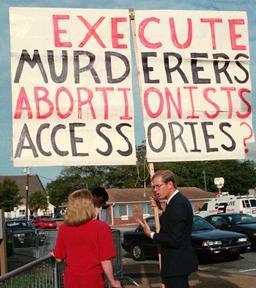 EXECUTE
MURDERERS
ABORTIONISTS
ACCESSORIES?